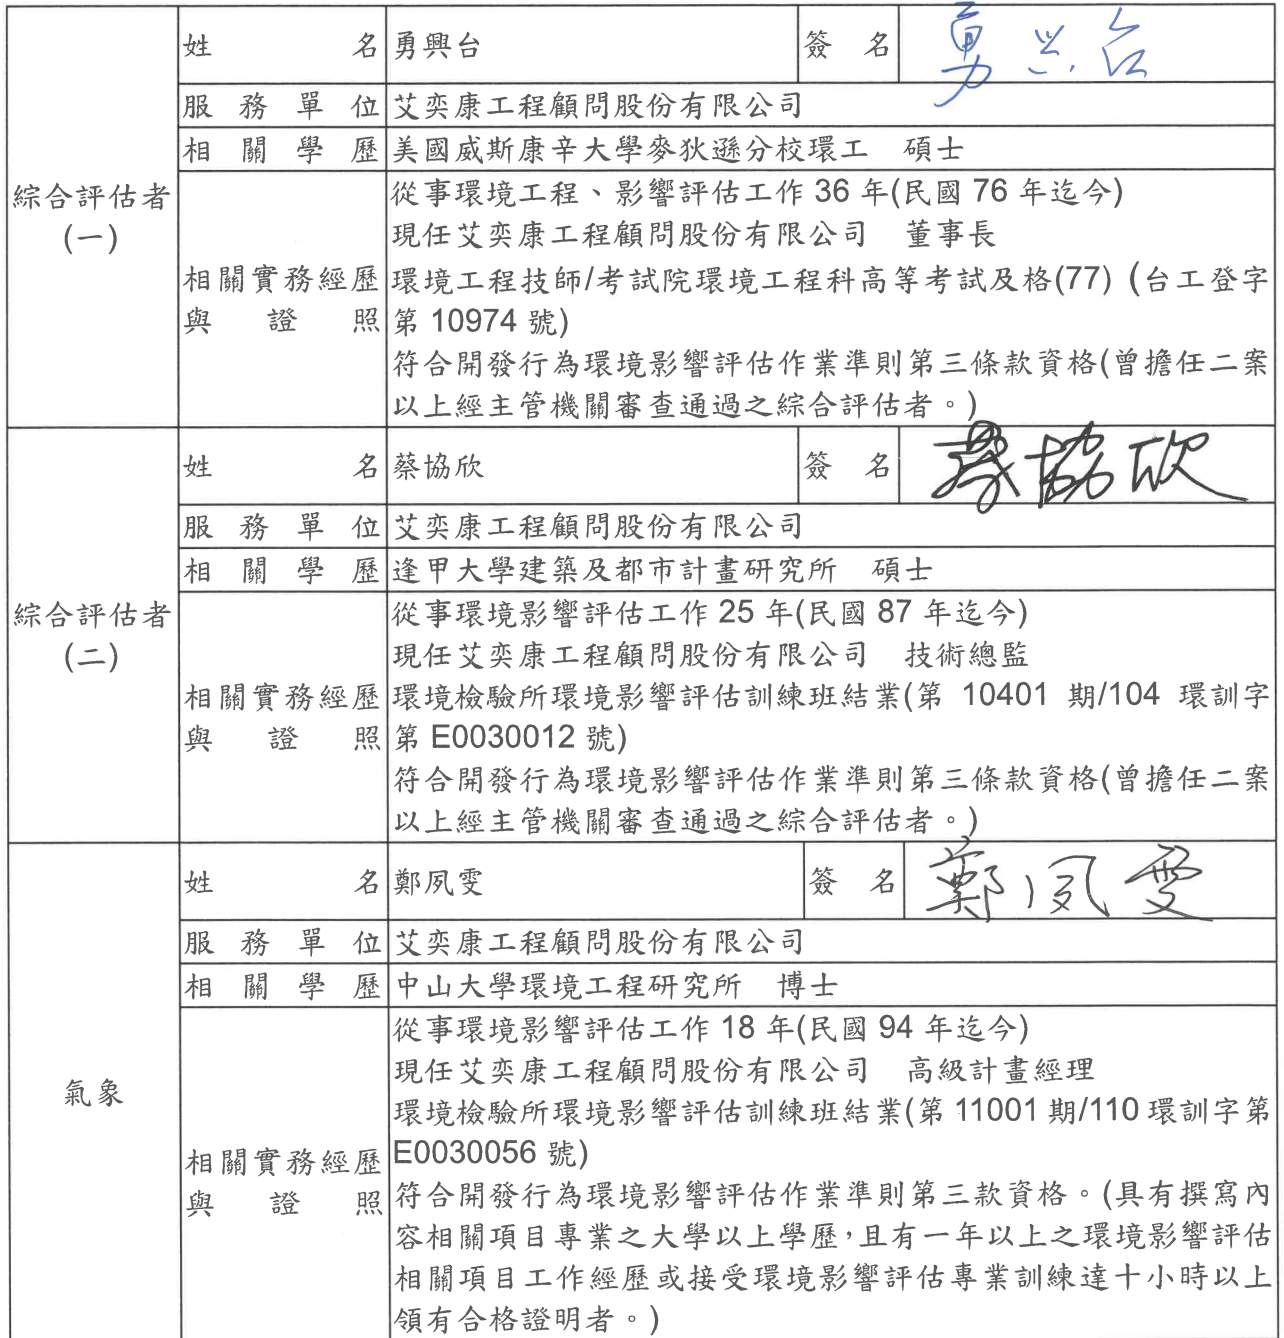 姓名 勇興台 簽名 勇興台
服務單位 艾奕康工程顧問股份有限公司
相關學歷 美國威斯康辛大學麥狄遜分校環工 碩士
綜合評估者
(一)
相關實務經歷
與證照
從事環境工程、影響評估工作 36 年(民國 76 年迄今)
現任艾奕康工程顧問股份有限公司 董事長
環境工程技師/考試院環境工程科高等考試及格(77) (台工登字
第 10974 號)
符合開發行為環境影響評估作業準則第三條款資格(曾擔任二案
以上經主管機關審查通過之綜合評估者。)
姓名 蔡協欣 簽名 蔡協欣
服務單位 艾奕康工程顧問股份有限公司
相關學歷 逢甲大學建築及都市計畫研究所 碩士
綜合評估者
(二)
相關實務經歷
與證照
從事環境影響評估工作 25 年(民國 87 年迄今)
現任艾奕康工程顧問股份有限公司 技術總監
環境檢驗所環境影響評估訓練班結業(第 10401 期/104 環訓字
第 E0030012 號)
符合開發行為環境影響評估作業準則第三條款資格(曾擔任二案
以上經主管機關審查通過之綜合評估者。)
姓名 鄭夙雯 簽名 鄭夙雯
服務單位 艾奕康工程顧問股份有限公司
相關學歷 中山大學環境工程研究所 博士
氣象
相關實務經歷
與證照
從事環境影響評估工作 18 年(民國 94 年迄今)
現任艾奕康工程顧問股份有限公司 高級計畫經理
環境檢驗所環境影響評估訓練班結業(第 11001 期/110 環訓字第
E0030056 號)
符合開發行為環境影響評估作業準則第三款資格。(具有撰寫內
容相關項目專業之大學以上學歷，且有一年以上之環境影響評估
相關項目工作經歷或接受環境影響評估專業訓練達十小時以上
領有合格證明者。)